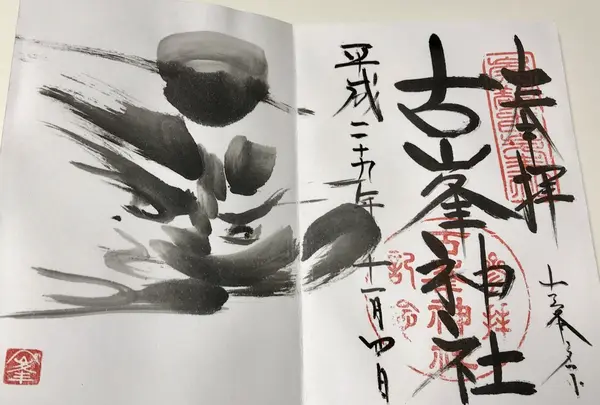 奉拝
古峯神社
平成二十九年十一月四日
参拝
古峯神社
記念
峯